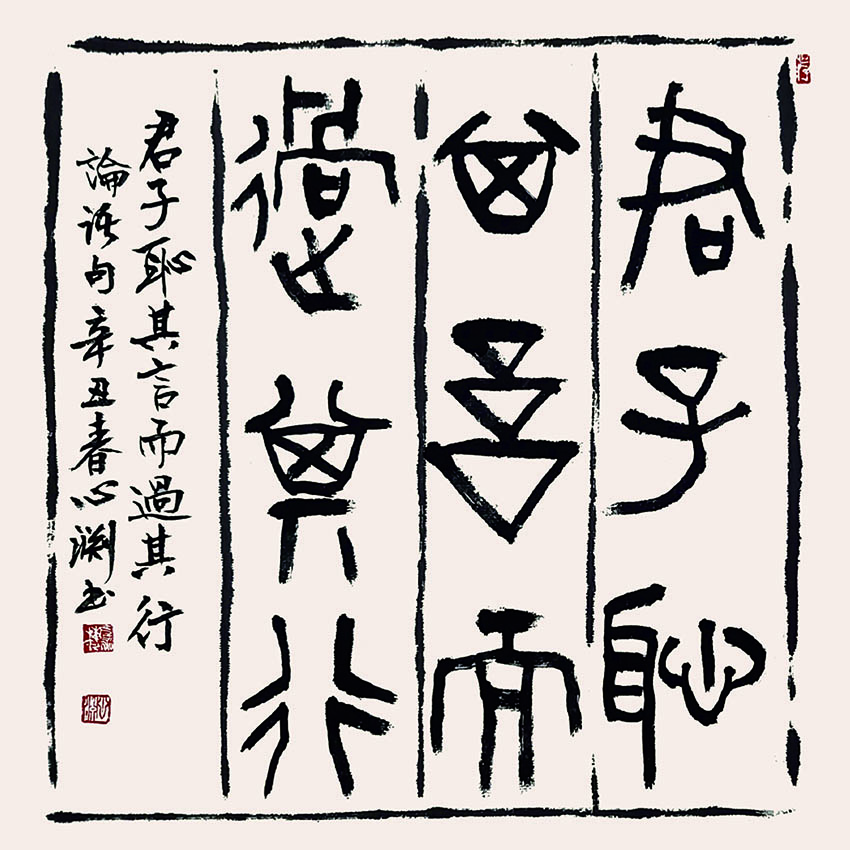 君子恥
其言而
過其行
君子恥其言而過其行
論語句辛丑春心淵書